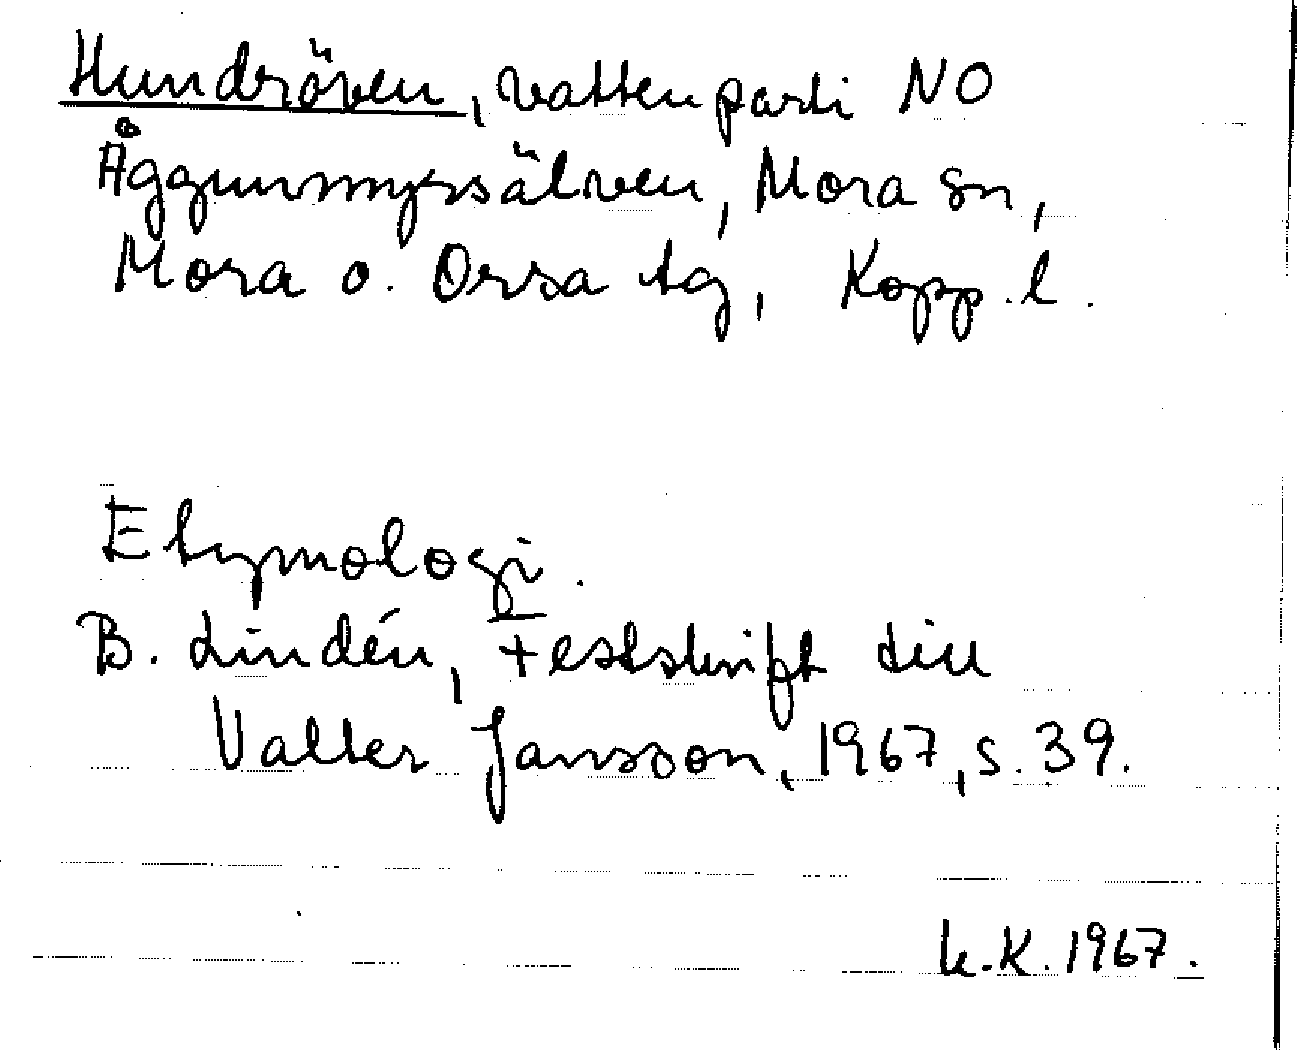 Hundröven, vattenparti NO
Åggunmyrsälven, Mora sn,
Mora o. Orsa tg, Kopp. l.
Etymologi.
B. Lindén, Festskrift till
Valter Jansson, 1967, s. 39.
K.K. 1967.